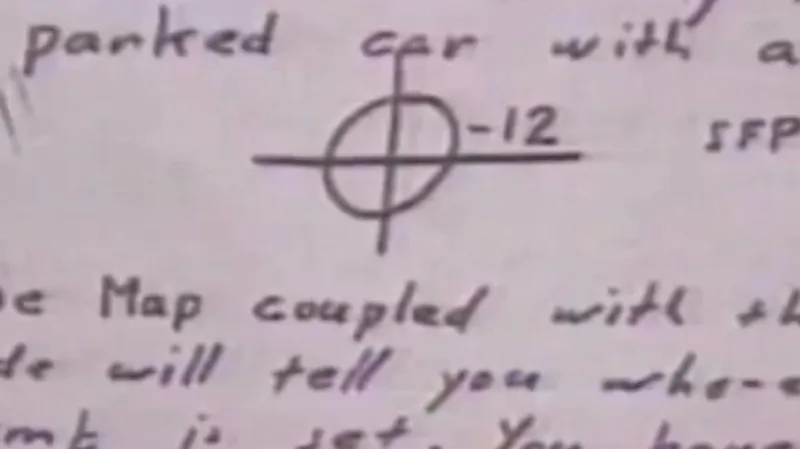 parked car with a
-12
SFP
e Map coupled with th
de will tell you who-e
is set. You have